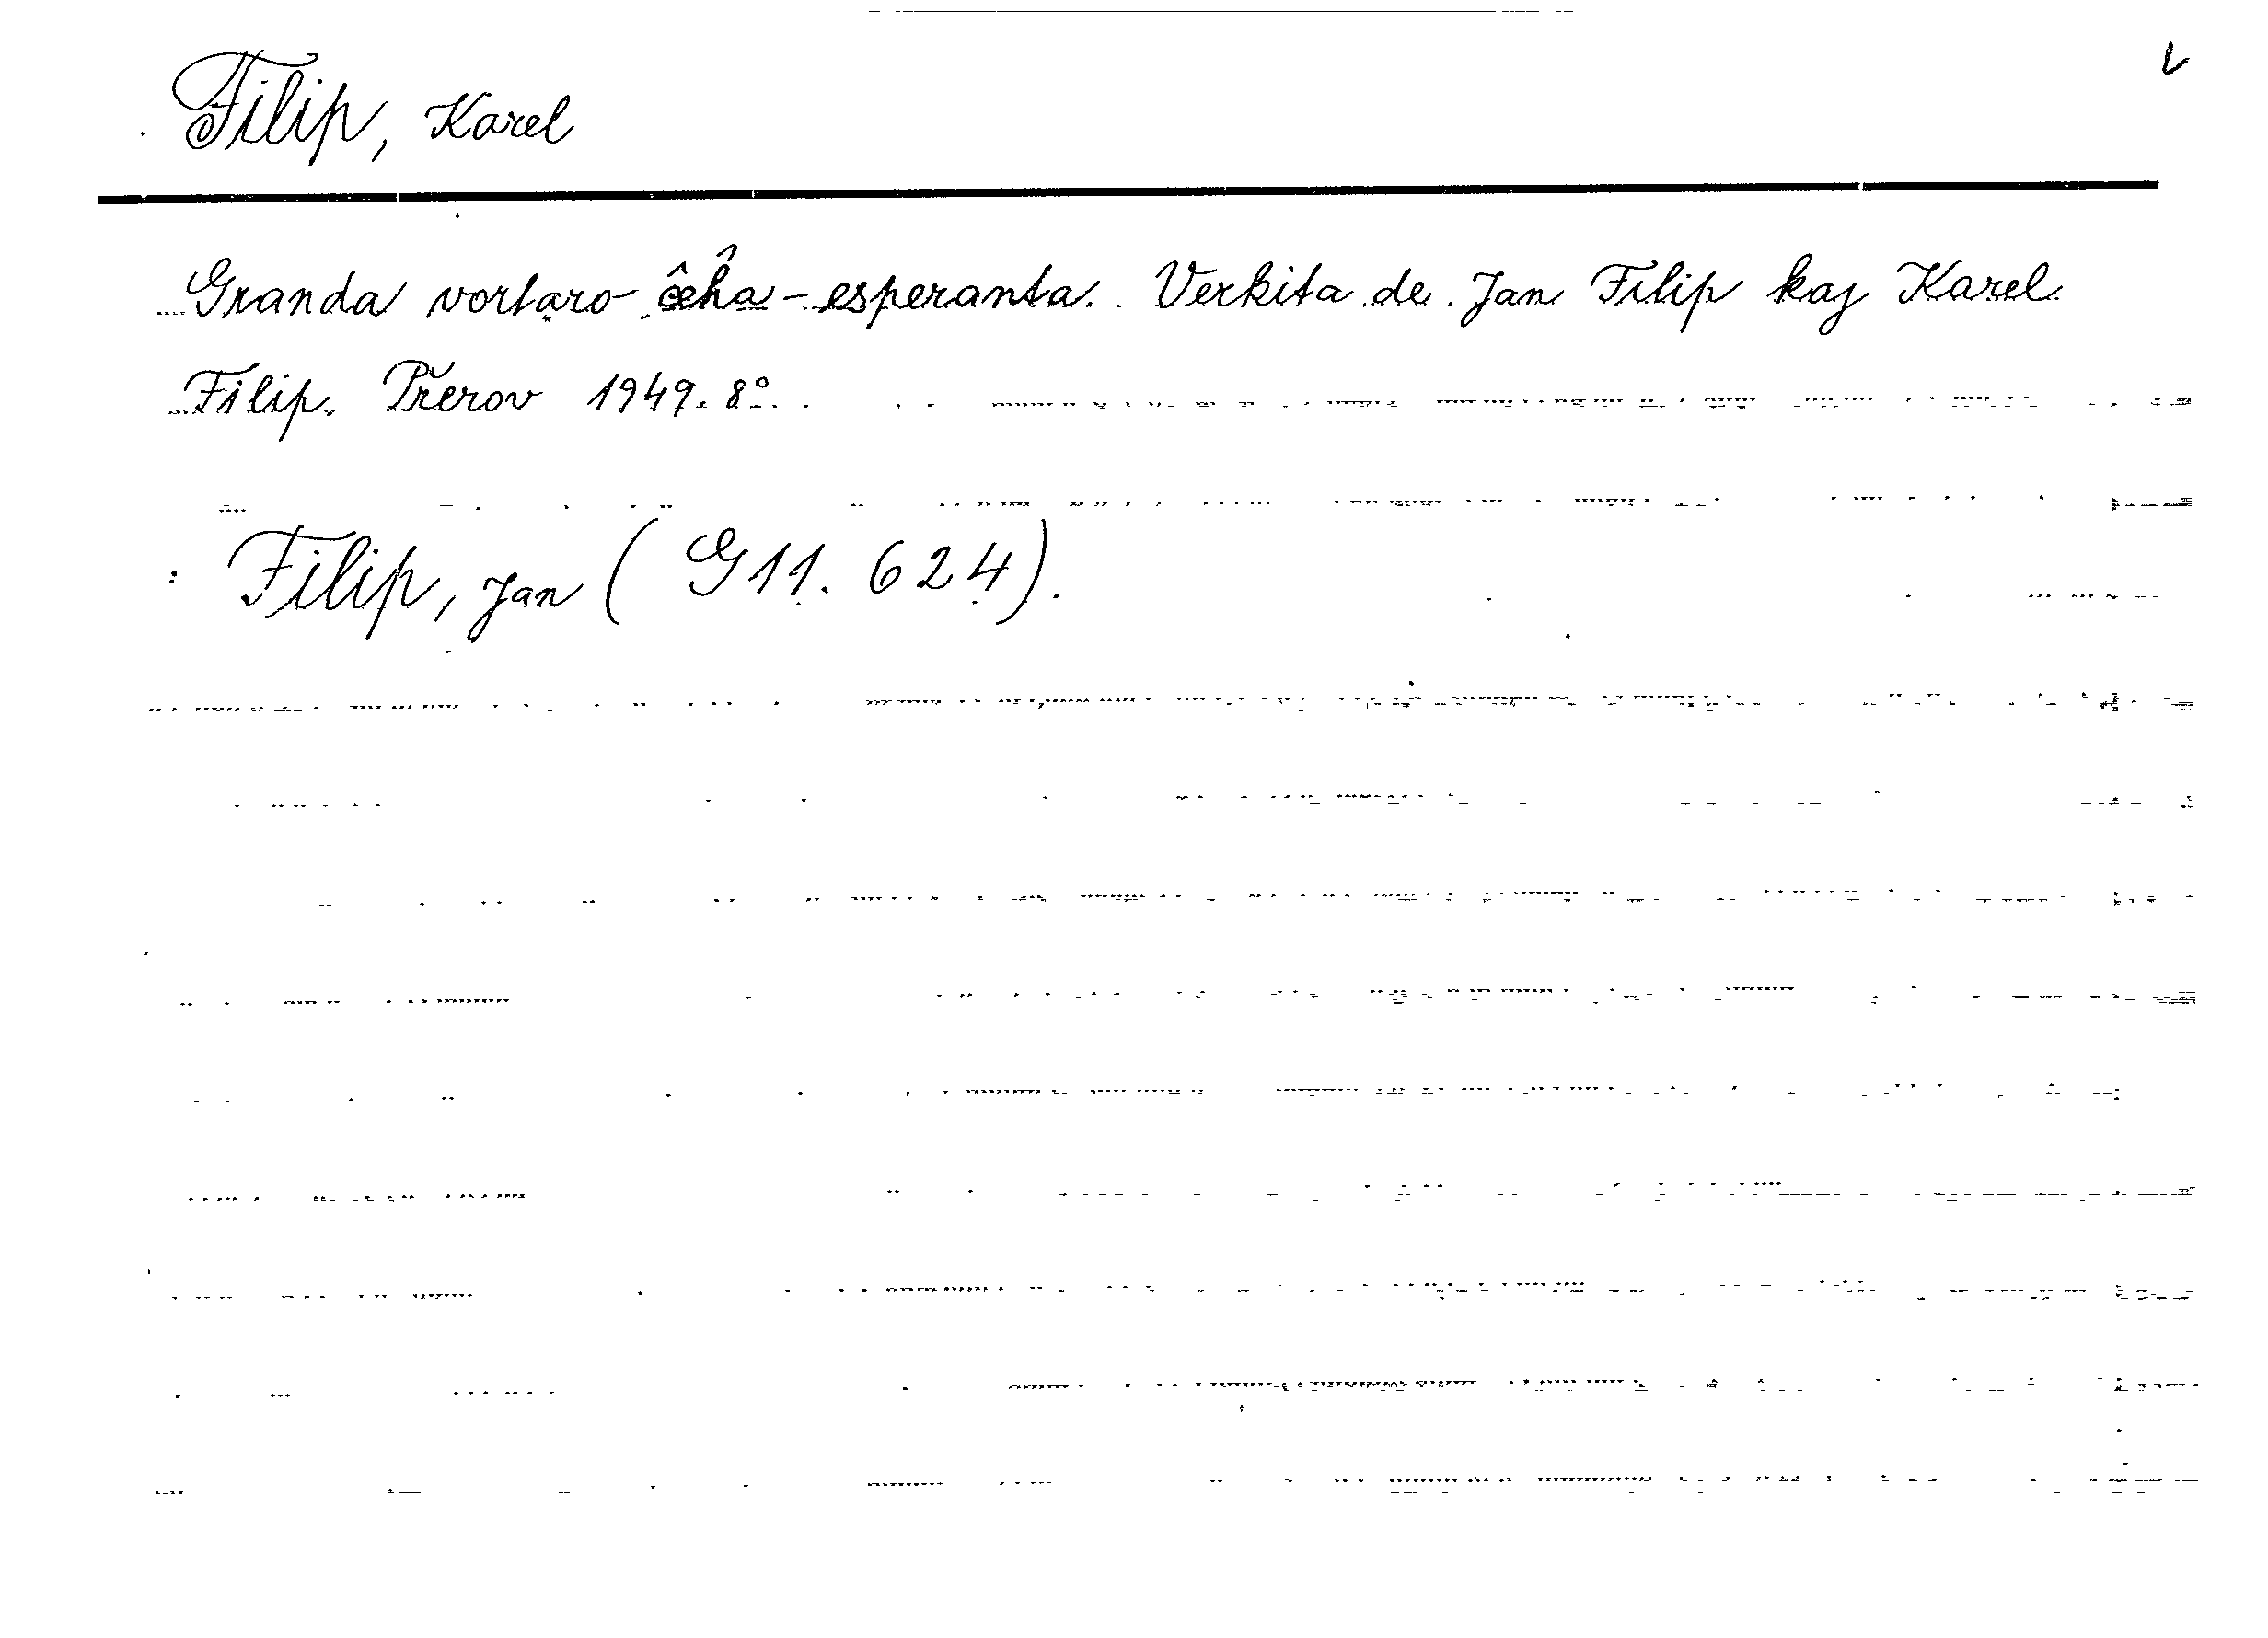 Filip, Karel
Granda vortaro ĉeĥa-esperanta. Verkita de Jan Filip kaj Karel
Filip. Přerov 1949. 8°.
Filip, Jan (G 11. 624).